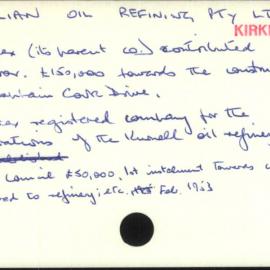 LIAN OIL REFINING PTY LT
KIRK
ex (its parent co.) contributed
£150,000 towards the constru
Captain Cook Drive.
ex registered company for the
rations of the Kurnell oil refiner
Council £50,000, 1st instalment towards
to refinery; etc. Feb. 1953